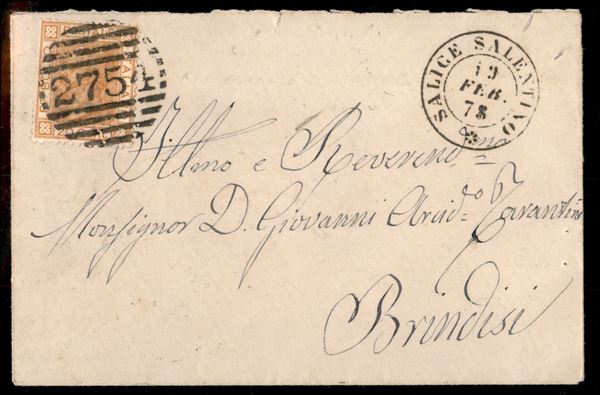 2754
SALICE SALENTINO
19
FEB.
78
Illmo e Reverend.mo
Monsignor D. Giovanni Arcid.o Tarantini
Brindisi